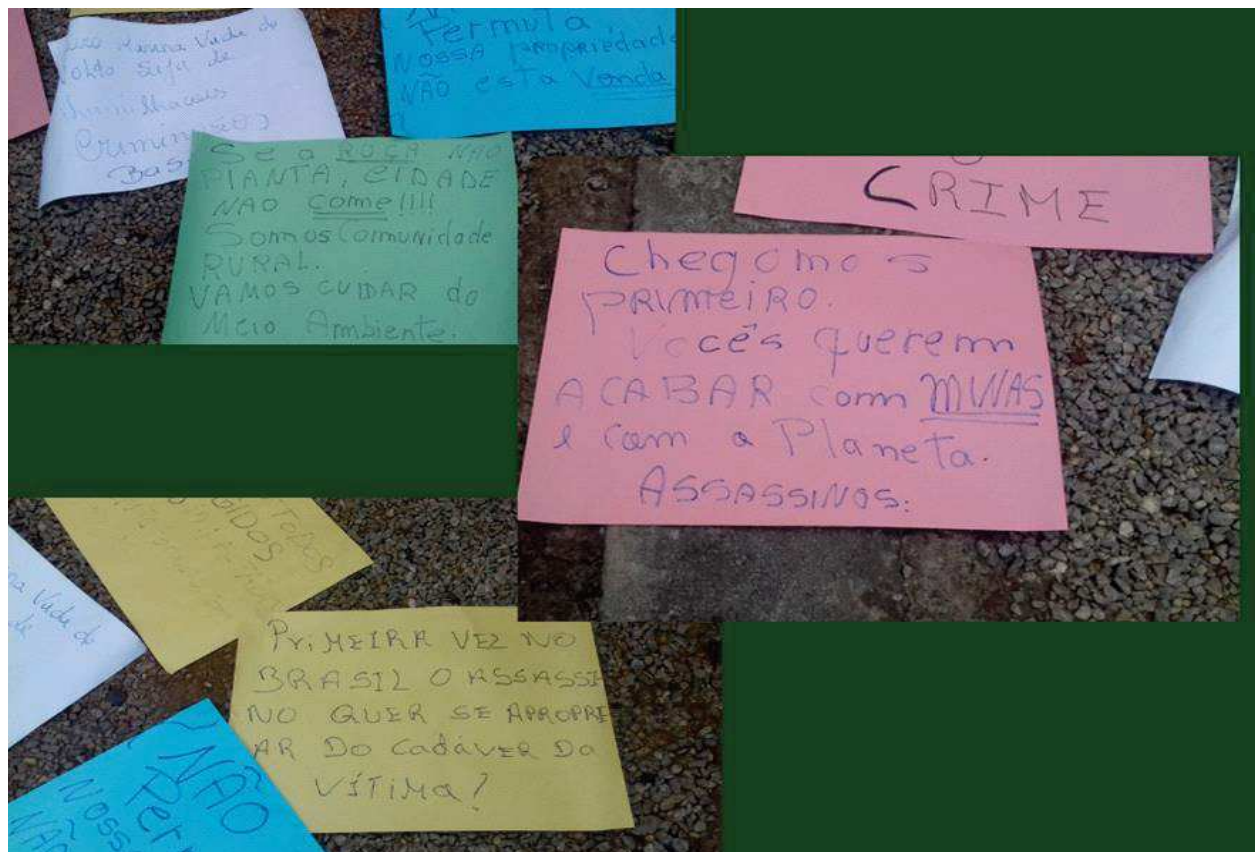 Vada de
volta
de
Criminosos
Bas
Permuta
NOSSA PROPRIEDADE
NÃO esTa Venda
Se a ROÇA NÃO
PIANTA, CIDADE
NAO come!!!!
Somos Comunidade
RURAL.
VAMOS CUIDAR do
Meio Ambiente.
CRIME
Chegamos
PRIMEIRO.
Vocês querem
ACABAR com MINAS
e com o Planeta.
ASSASSINOS.
TODOS
GIDOS
Vada de
de
PriMEIRA VEZ NO
BRASIL O ASSASSI
NO QUER SE APROPRI
AR DO cadáVER Da
VÍTiMa?
NÃO
Per
NOSS
NÃO